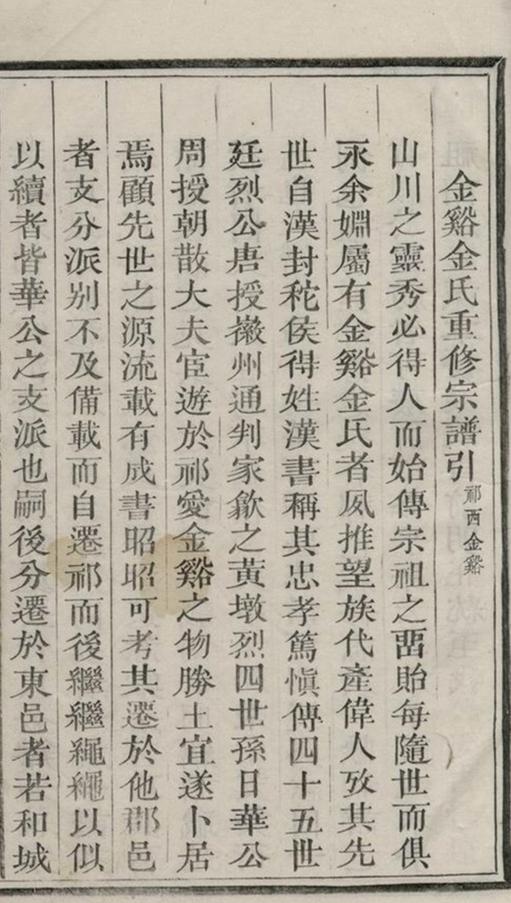 金谿金氏重修宗譜引 祁西金谿
山川之靈秀必得人而始傳宗祖之畱貽每隨世而俱
永余婣屬有金谿金氏者夙推望族代產偉人攷其先
世自漢封秺侯得姓漢書稱其忠孝篤愼傳四十五世
廷烈公唐授徽州通判家歙之黃墩烈四世孫日華公
周授朝散大夫宦遊於祁愛金谿之物勝土宜遂卜居
焉顧先世之源流載有成書昭昭可考其遷於他郡邑
者支分派別不及備載而自遷祁而後繼繼繩繩以似
以續者皆華公之支派也嗣後分遷於東邑者若和城